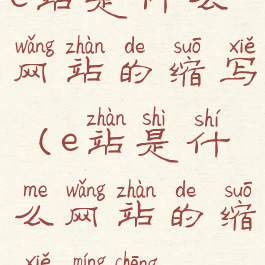 e站是什么
wǎng zhàn de suō xiě
网站的缩写
zhàn shì shí
(e站是什
me wǎng zhàn de suō
么网站的缩
xiě míng chēng